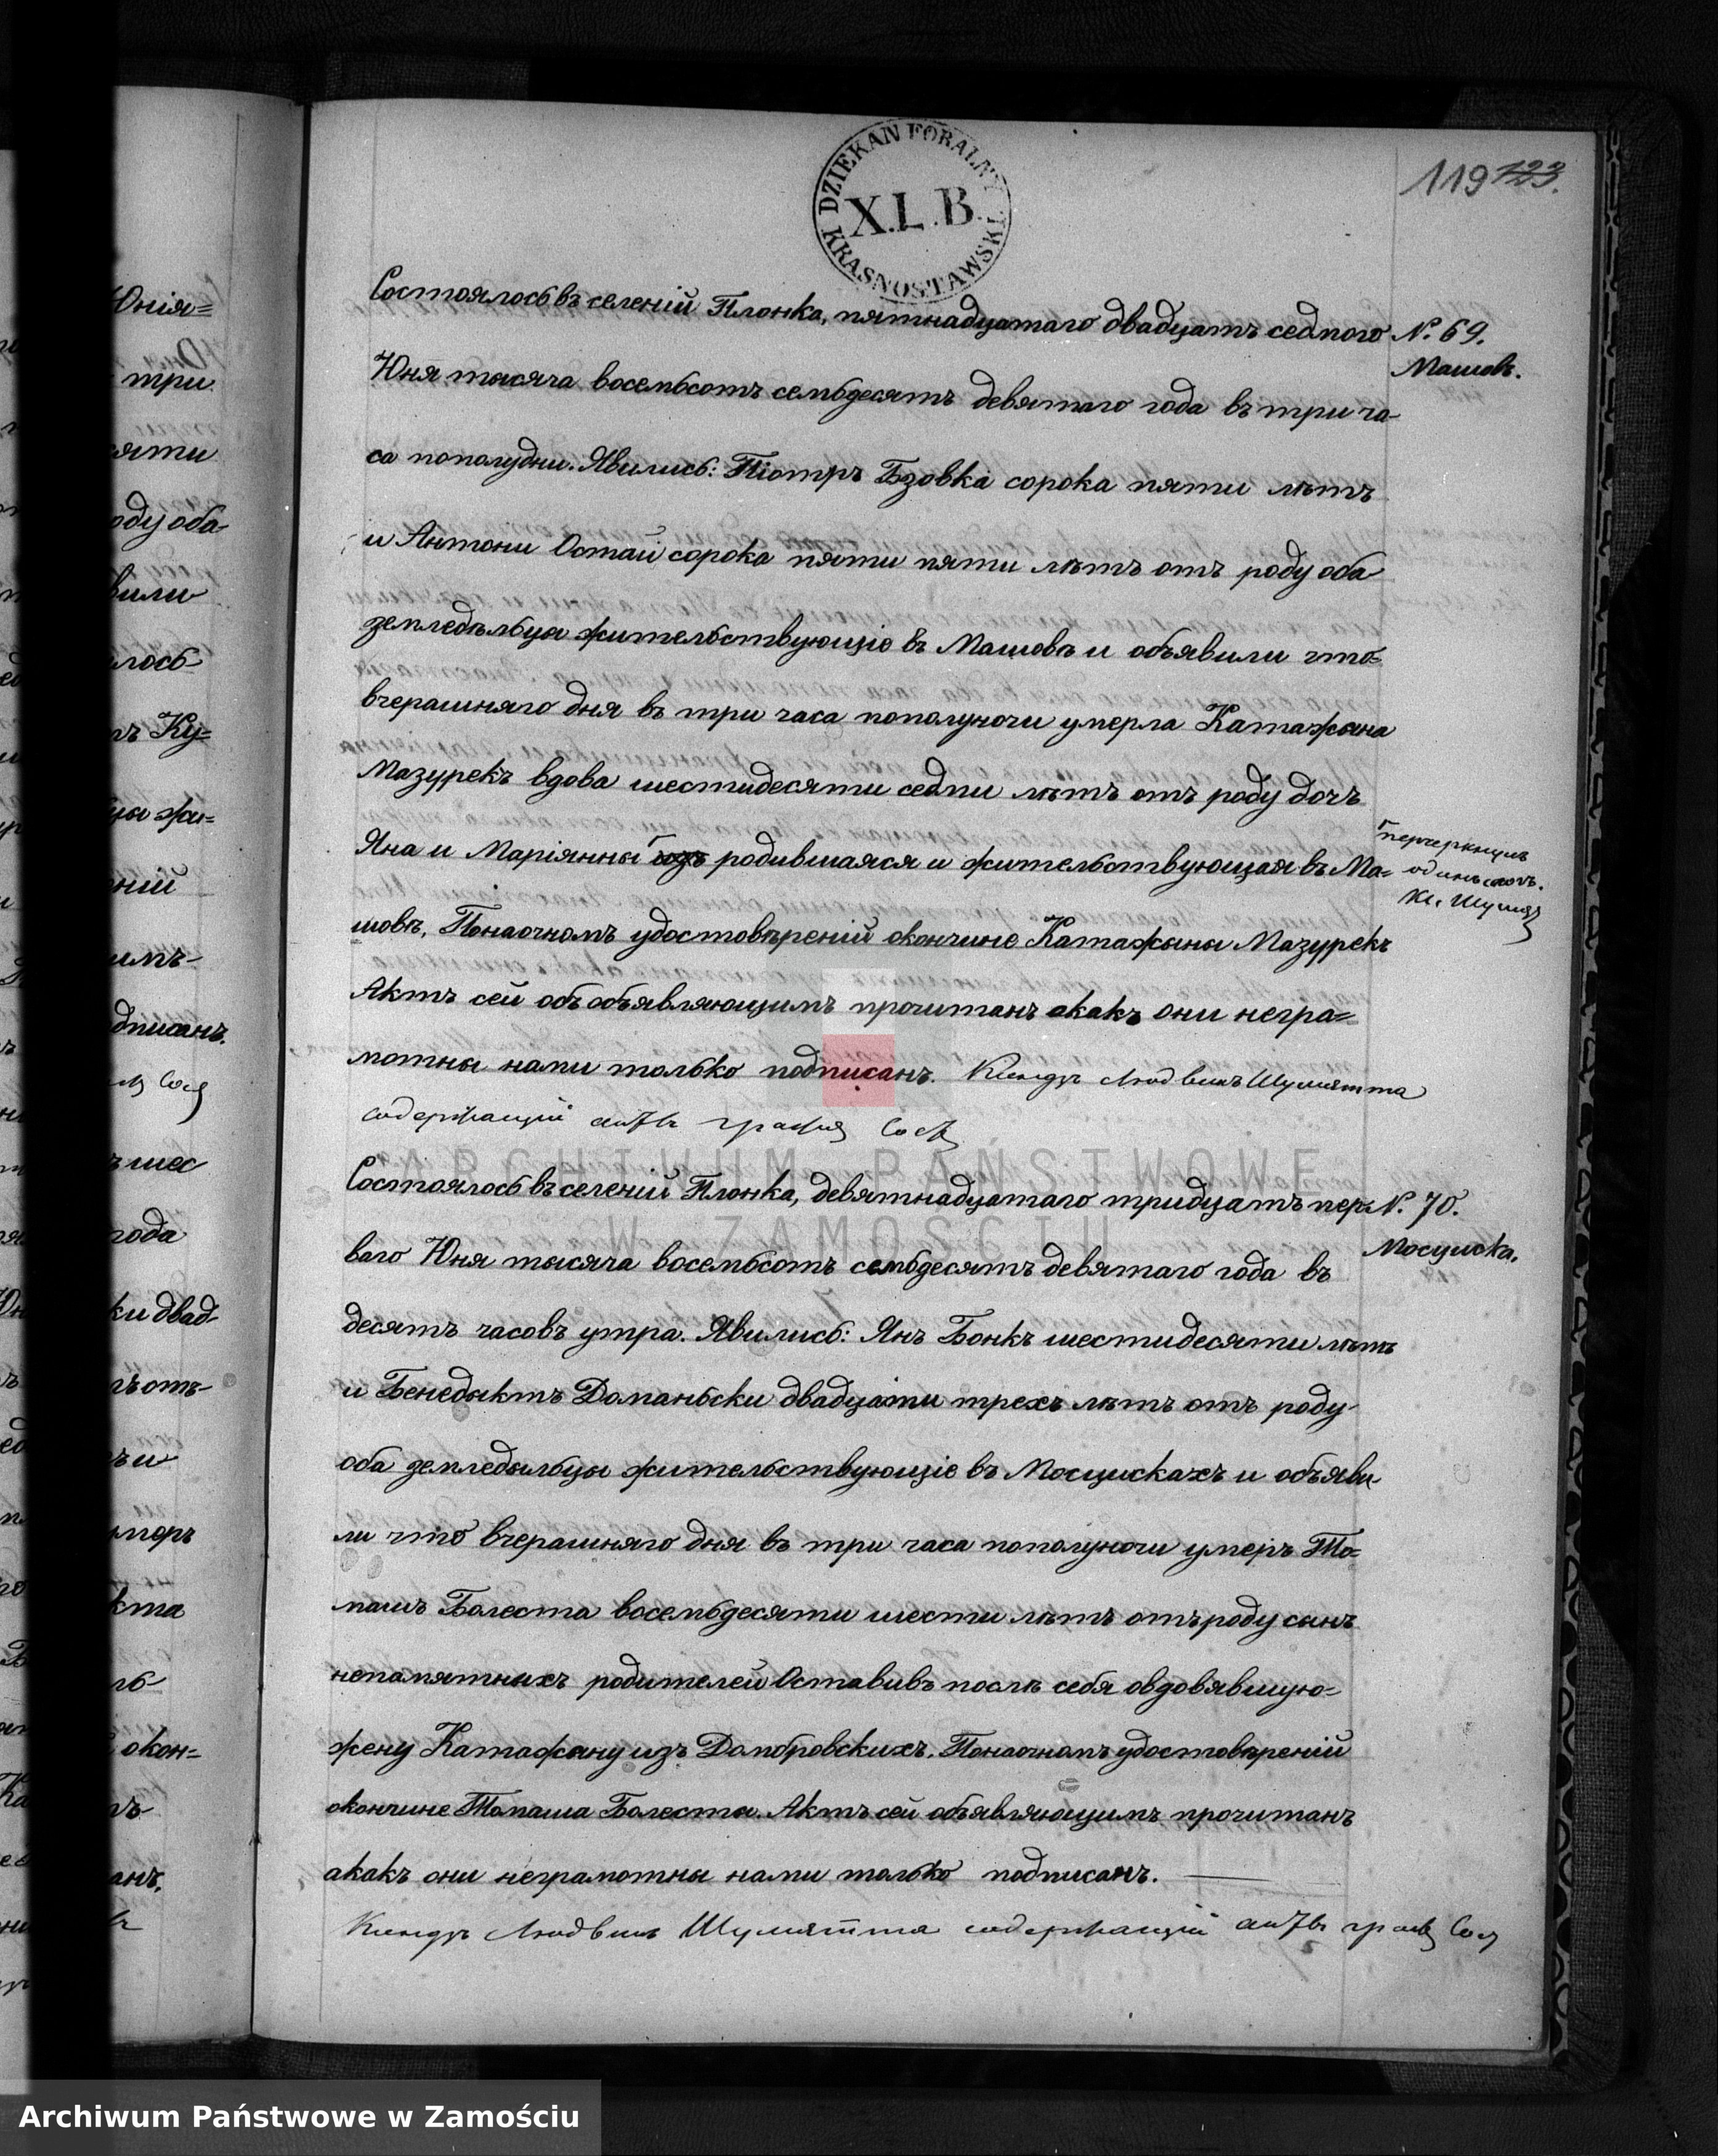 119 123.
DZIEKAN FORALNY
X.L.B.
KRASNOSTAWSKI
Юнія=
три
яти
оду оба-
вили
лось
ъ Ку=
цы жи-
ній
имъ-
дписанъ.
Сод
шес
года
ки двад-
ъ отъ-
ъ и
меръ
кта
окон=
анъ.
Состоялось въ селеній Плонка, пятнадцатаго двадцать седмого
N. 69.
Машовъ.
Юня тысяча восемьсотъ семьдесятъ девятаго года въ три ча-
са пополудни. Явились: Піотръ Бзовка сорока пяти лѣтъ
и Антони Остай сорока пяти пяти лѣтъ отъ роду оба
земледѣльцы жительствующіе въ Машовѣ и объявили что-
вчерашняго дня въ три часа пополуночи умерла Катажына
Мазурекъ вдова шестидесяти седми лѣтъ отъ роду дочъ
Яна и Маріянны родившаяся и жительствующая въ Ма=
перчеркнулъ
одинъ слов.
Кс. Шумя
шовѣ, Понаочномъ удостовѣреній окончине Катажыны Мазурекъ
Актъ сей объобъявляющимъ прочитанъ акакъ они негра=
мотны нами только подписанъ. Ксендзъ Людвикъ Шумятта
содержащій актъ гражд Сост
Состоялось въ селеній Плонка, девятнадцатаго тридцать пер-
N. 70.
Мосциска.
ваго Юня тысяча восемьсотъ семьдесятъ девятаго года въ
десять часовъ утра. Явились: Янъ Бонкъ шестидесяти лѣтъ
и Бенедыктъ Доманьски двадцати трехъ лѣтъ отъ роду-
оба земледѣльцы жительствующіе въ Мосцискахъ и объяви-
ли что вчерашняго дня въ три часа пополуночи умеръ То=
машъ Болеста восемьдесяти шести лѣтъ отъ роду сынъ
непамятныхъ родителей Оставивъ послѣ себя овдовявшую=
жену Катажыну изъ Домбровскихъ. Понаочномъ удостовѣреній
окончине Томаша Болесты. Актъ сей объявляющимъ прочитанъ
акакъ они неграмотны нами только подписанъ.
Ксендзъ Людвикъ Шумятта содержащій актъ гражд Сос
ARCHIWUM PAŃSTWOWE
W ZAMOŚCIU
Archiwum Państwowe w Zamościu